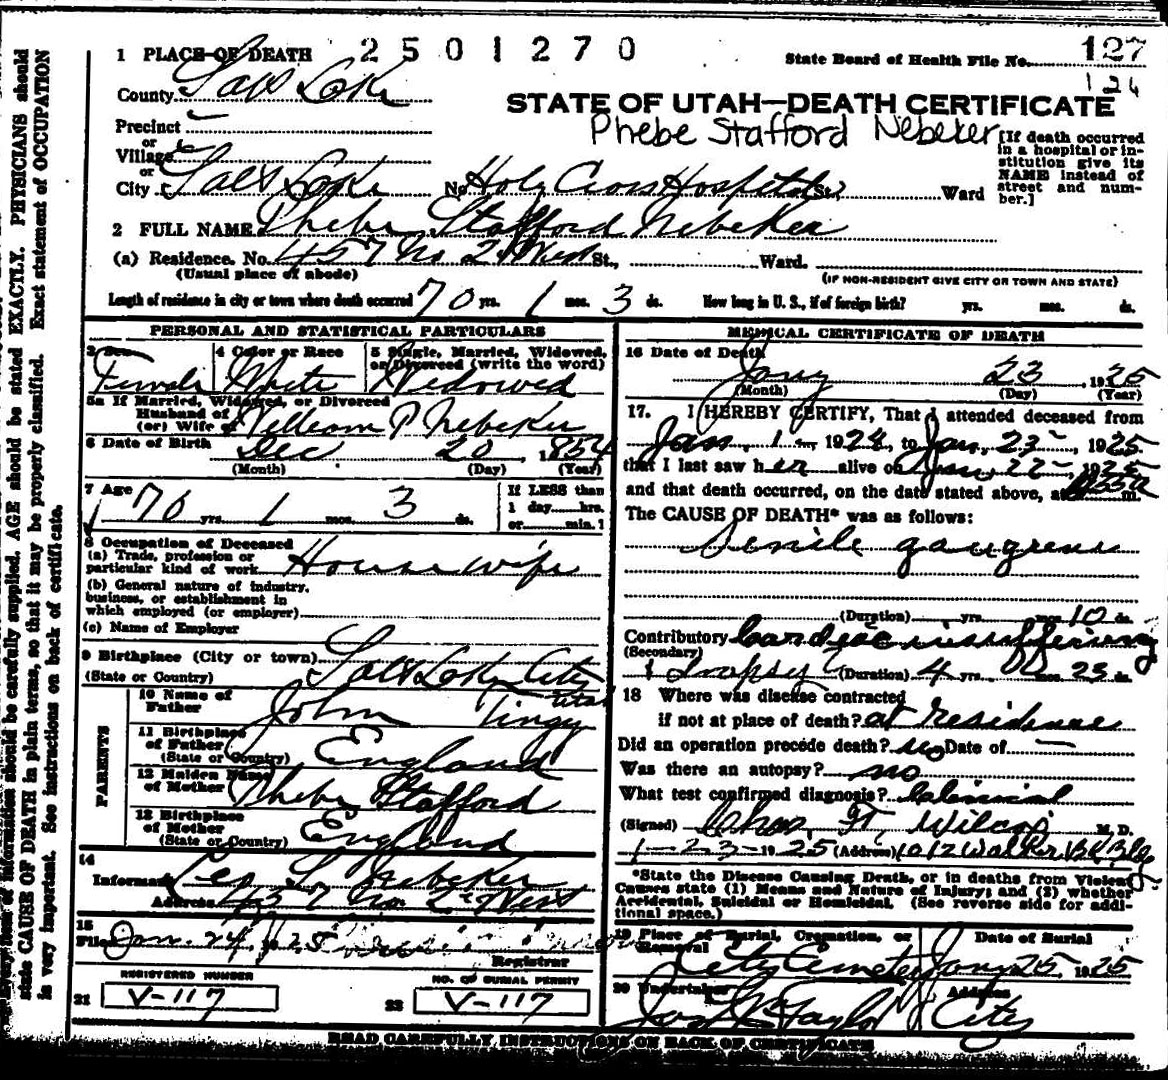 1 PLACE OF DEATH 2501270 State Board of Health File No. 127
126
County Salt Lake
STATE OF UTAH—DEATH CERTIFICATE
Phebe Stafford Nebeker
Precinct
or
Village
or
City Salt Lake No. Holy Cross Hospital St., Ward
[If death occurred in a hospital or institution give its NAME instead of street and number.]
2 FULL NAME Phebe Stafford Nebeker
(a) Residence. No. 457 No 2d West St., Ward.
(Usual place of abode) (IF NON-RESIDENT GIVE CITY OR TOWN AND STATE)
Length of residence in city or town where death occurred 70 yrs. 1 mos. 3 ds. How long in U. S., if of foreign birth? yrs. mos. ds.
PERSONAL AND STATISTICAL PARTICULARS
3 Sex Female
4 Color or Race White
5 Single, Married, Widowed, or Divorced (write the word) Widowed
5a If Married, Widowed, or Divorced
Husband of
(or) Wife of William P Nebeker
6 Date of Birth Dec 20, 1854
(Month) (Day) (Year)
7 Age 70 yrs. 1 mos. 3 ds.
If LESS than
1 day hrs.
or min.?
8 Occupation of Deceased
(a) Trade, profession or
particular kind of work Housewife
(b) General nature of industry,
business, or establishment in
which employed (or employer)
(c) Name of Employer
9 Birthplace (City or town) Salt Lake City
(State or Country) Utah
PARENTS
10 Name of
Father John Tingy
11 Birthplace
of Father
(State or Country) England
12 Maiden Name
of Mother Phebe Stafford
13 Birthplace
of Mother
(State or Country) England
14
Informant Leo S. Nebeker
Address 457 No. 2d West
15
Filed Jan. 24, 1925
Registrar
REGISTERED NUMBER
21 V-117
NO. OF BURIAL PERMIT
22 V-117
MEDICAL CERTIFICATE OF DEATH
16 Date of Death
Jany 23, 1925
(Month) (Day) (Year)
17. I HEREBY CERTIFY, That I attended deceased from
Jan. 1, 1924, to Jan. 23, 1925
that I last saw her alive on Jan. 22, 1925
and that death occurred, on the date stated above, at m.
The CAUSE OF DEATH* was as follows:
Senile gangrene
(Duration) yrs. mos. 10 ds.
Contributory Cardiac insufficiency
(Secondary)
& Dropsy (Duration) 4 yrs. mos. 23 ds.
18 Where was disease contracted
if not at place of death? at residence
Did an operation precede death? no Date of —
Was there an autopsy? no
What test confirmed diagnosis? Clinical
(Signed) Chas. F. Wilcox M. D.
1-23-1925 (Address) 1012 Walker Bk Bldg
*State the Disease Causing Death, or in deaths from Violent
Causes state (1) Means and Nature of Injury; and (2) whether
Accidental, Suicidal or Homicidal. (See reverse side for addi-
tional space.)
19 Place of Burial, Cremation, or
Removal City Cemetery
Date of Burial
Jany 25, 1925
20 Undertaker
Jos Wm Taylor
Address
City
READ CAREFULLY INSTRUCTIONS ON BACK OF CERTIFICATE
information should be carefully supplied. AGE should be stated EXACTLY. PHYSICIANS should
state CAUSE OF DEATH in plain terms, so that it may be properly classified. Exact statement of OCCUPATION
is very important. See instructions on back of certificate.